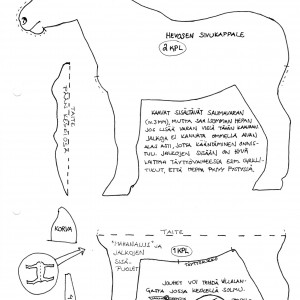 HEVOSEN SIVUKAPPALE
2 KPL
TAITE
KAAVAT SISÄLTÄVÄT SAUMAVARAN
MUTTA SAA
JOS LISÄÄ VARAN VIELÄ TÄHÄN KAAVAAN
JALKOJA EI KANNATA OMMELLA AIVAN
ALAS ASTI, JOTTA KÄÄNTÄMINEN ONNIS-
TUU. JALKOJEN SISÄÄN ON HYVÄ
LAITTAA TÄYTTÖVAIHEESSA ESIM.
TIKUT, ETTÄ HEPPA PYSYY PYSTYSSÄ
KORVA
TAITE
"MAHANALUS" JA
JALKOJEN
SISÄ-
PUOLET
1 KPL
TÄYTTÖAUKKO
JOUHET VOI TEHDÄ VILLALAN-
GASTA JOSSA KESKELLÄ SOLMU.